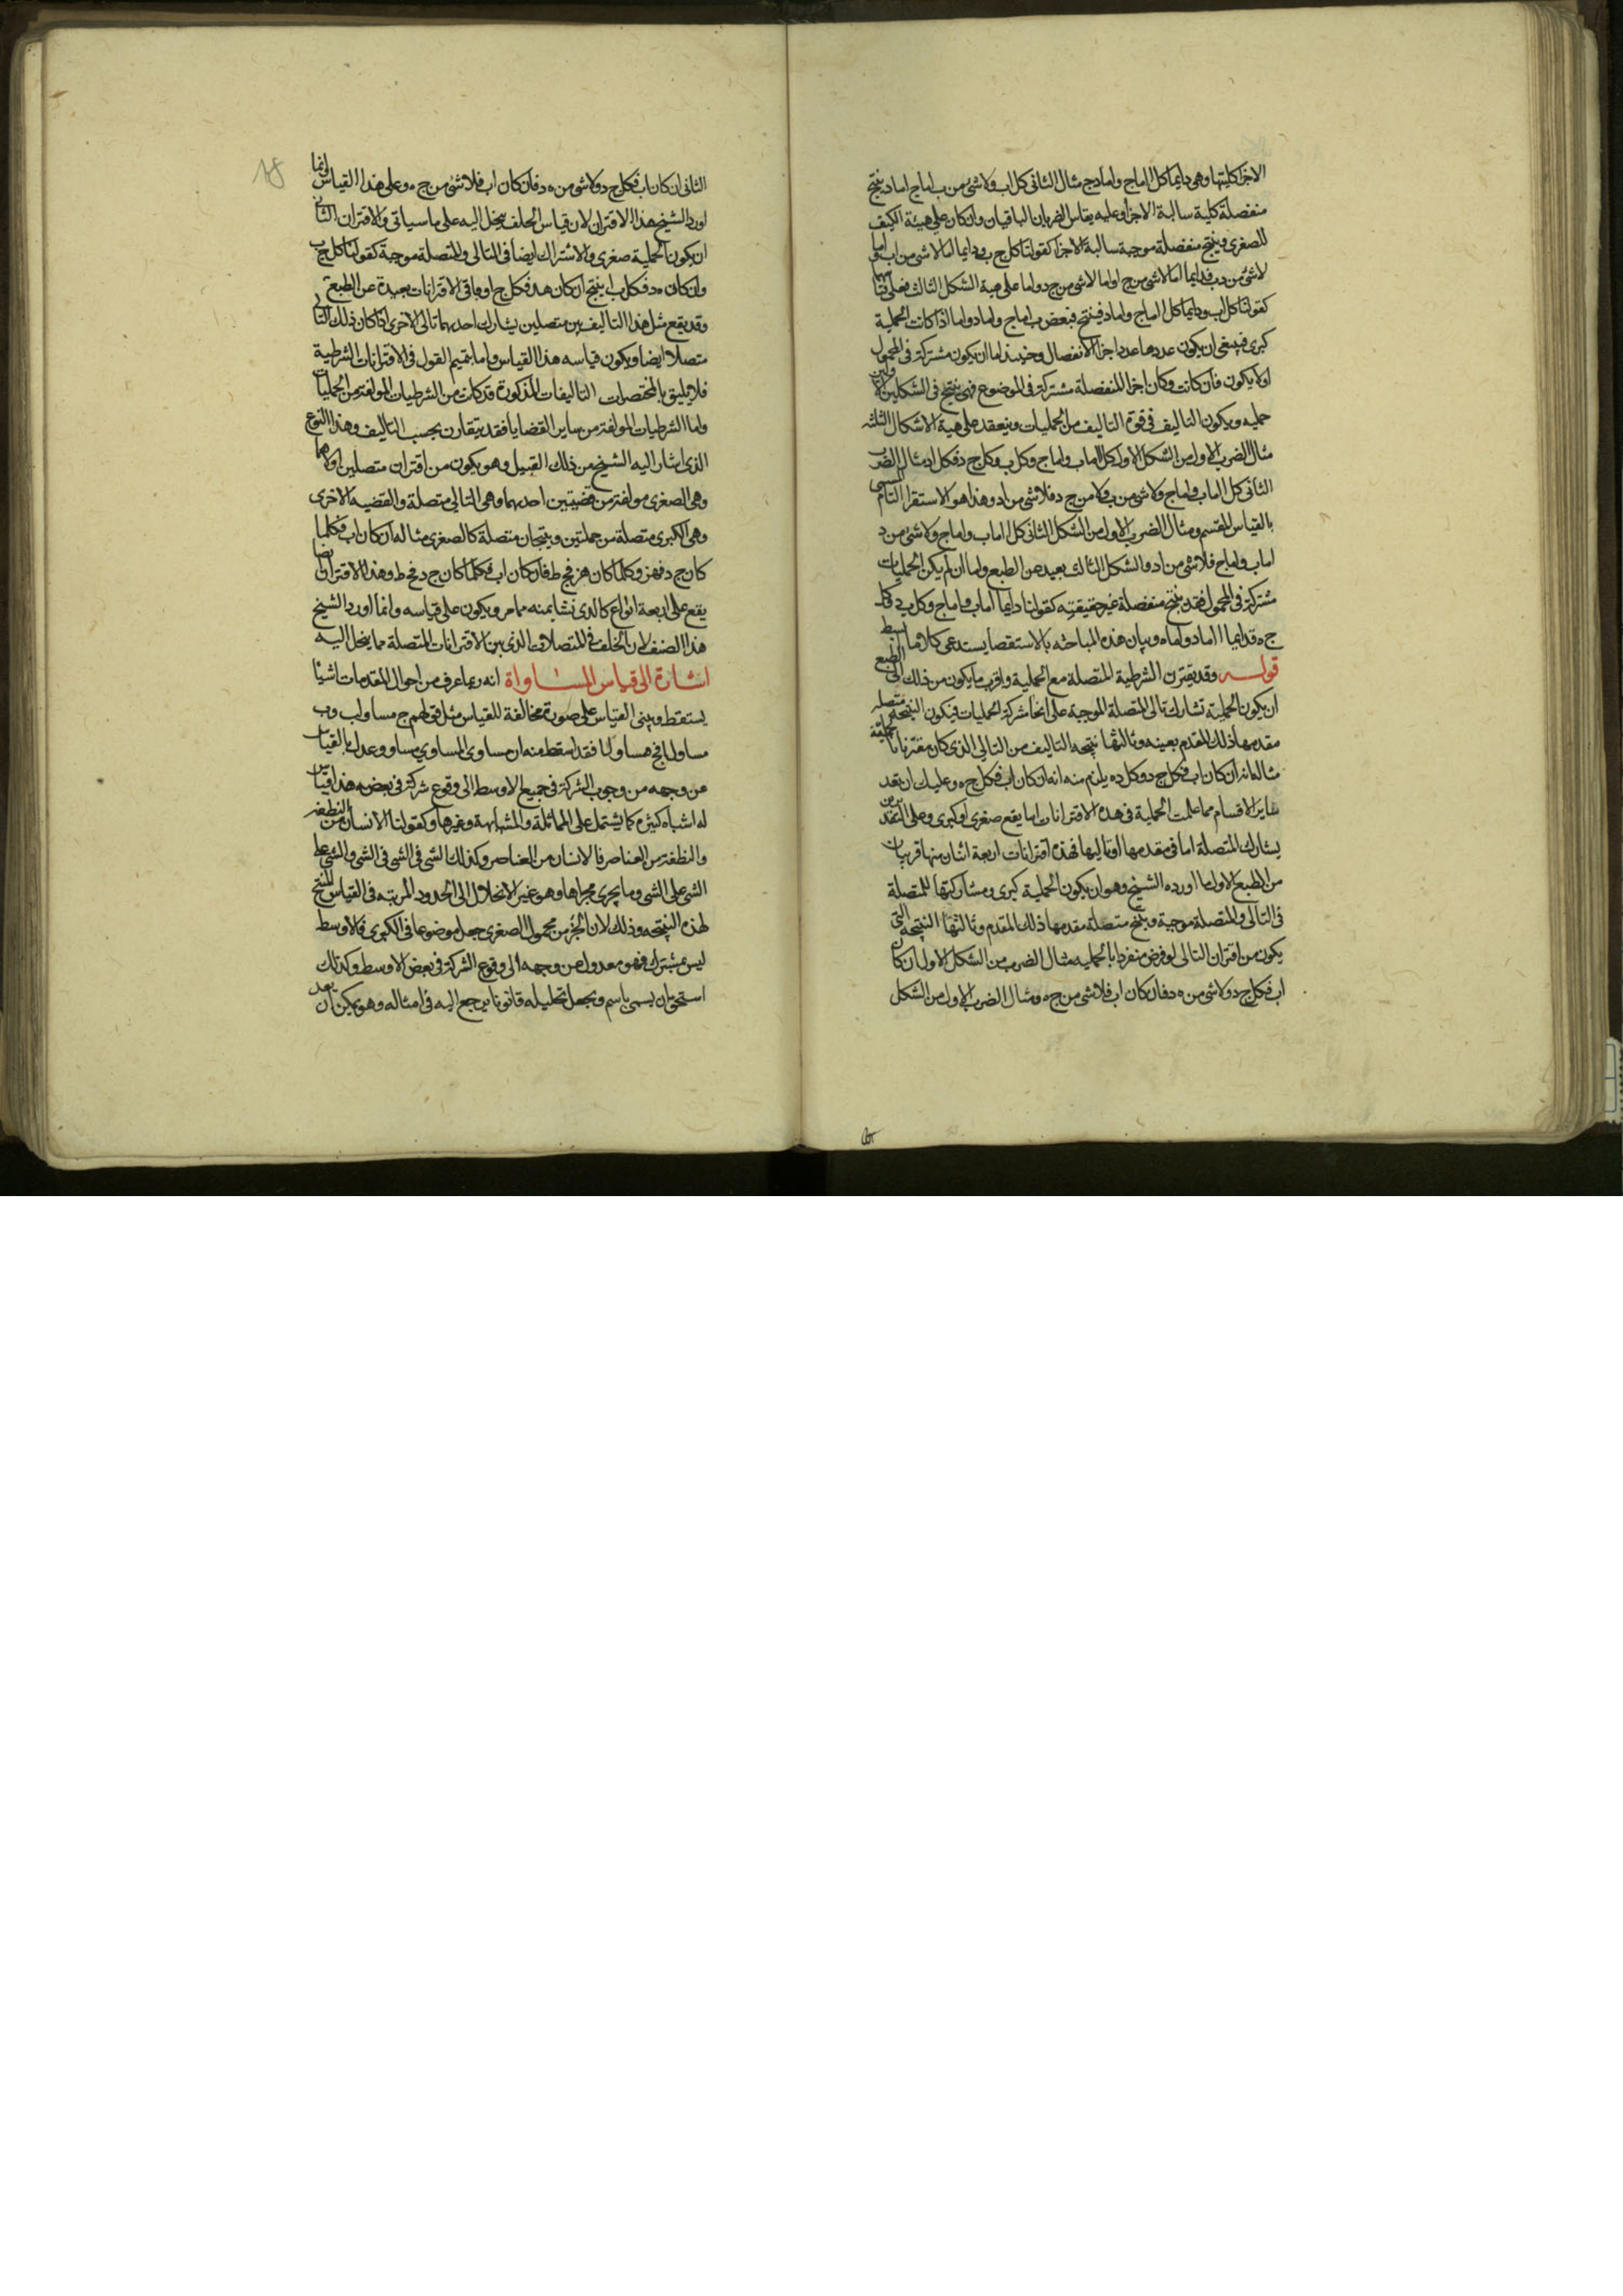 الاجزا كليتها وهى دايما كل ا اما ج واما د ج مثال الثانى كل ا ب ولا شئ من ب اما ج اما د ينتج
منفصلة كلية سالبة الاجزا وعليه يقاس الضربان الباقيان وان كان على هيئة الكيف
للصغرى وينتج منفصلة موجبة سالبة الاجزا كقولنا كل ج ب ودايما اما لا شئ من ا ب واما
لا شئ من د ب فدايما اما لا شئ من ج ا واما لا شئ من ج د واما على هية الشكل الثالث
كقولنا كل ا ب ودايما كل ا اما ج واما د فينتج فبعض ب اما ج واما د واما اذا كانت الحملية
كبرى فينبغى ان يكون عددها عدد اجزا الانفصال وحينئذ اما ان يكون مشتركة فى المحمول
اولا يكون فان كانت وكان اجزا المنفصلة مشتركة فى الموضوع فهى ينتج فى الشكلين الاولين
حمليه ويكون التاليف فى قوة التاليف من الحمليات وينعقد على هية الاشكال الثلثة
مثال الضرب الاول من الشكل الاول كل ا اما ب واما ج وكل ب وكل ج د فكل ا د مثال الضرب
الثانى كل ا اما ب واما ج ولا شئ من ب ولا من ج د فلا شئ من ا د وهذا هو الاستقرا التام المسمى
بالقياس المقسم ومثال الضرب الاول من الشكل الثانى كل ا اما ب واما ج ولا شئ من د
اما ب واما ج فلا شئ من ا د والشكل الثالث بعيد عن الطبع واما ان لم يكن الحمليات
مشتركة فى المحمول فقد ينتج منفصلة غير حقيقيه كقولنا دايما ا اما ب واما ج وكل ب د وكل
ج ه فدايما ا اما د واما ه وبيان هذه المباحثه بالاستقصا يستدعى كلاما ابسط
قوله وقد يقترن الشرطية المتصلة مع الحملية واقرب ما يكون من ذلك الى الطبع
ان يكون الحملية تشارك تالى المتصلة الموجبة على انحا شركة الحمليات فيكون النتيجة متصلة
مقدمها ذلك المقدم بعينه وتاليها نتيجه التاليف من التالى الذى كان مقترنا بالحملية
مثاله انه ان كان ا ب فكل ج د وكل د ه يلزم منه انه ان كان ا ب فكل ج ه وعليك ان تعد
ساير الاقسام مما علمت الحملية فى هذه الاقترانات اما يقع صغرى او كبرى وعلى التقديرين
يشارك المتصلة اما فى مقدمها او تاليها فهذه اقترانات اربعة اثنان منها قريبان
من الطبع الاول ما اورده الشيخ وهو ان يكون الحملية كبرى ومشاركتها للمتصلة
فى التالى والمتصلة موجبة وينتج متصلة مقدمها ذلك المقدم وتاليها النتيجه التى
يكون من اقتران التالى لو فرض منفردا بالحمليه مثال الضرب من الشكل الاول ان كان
ا ب فكل ج د ولا شئ من ه د فان كان ا ب فلا شئ من ج ه ومثال الضرب الاول من الشكل
الثانى ان كان ا ب فكل ج د ولا شئ من ه د فان كان ا ب فلا شئ من ج ه وعلى هذا القياس وانما
اورد الشيخ هذا الاقتران لان قياس الخلف ينحل اليه على ما سياتى والاقتران الثانى
ان يكون الحملية صغرى والاشتراك ايضا فى التالى والمتصلة موجبة كقولنا كل ج ب
وان كان ه د فكل ب ا ينتج ان كان ه د فكل ج ا وباقى الاقترانات بعيدة عن الطبع
وقد يقع مثل هذا التاليف بين متصلين يشارك احديهما تالى الاخرى اذا كان ذلك التالى
متصلا ايضا ويكون قياسه هذا القياس واما تتميم القول فى الاقترانات الشرطية
فلا يليق بالمختصرات التاليفات المذكورة قد كانت من الشرطيات المولفة من الحمليات
واما الشرطيات المولفة من ساير القضايا فقد يتقارن بحسب التاليف وهذا النوع
الذى اشار اليه الشيخ من ذلك القبيل وهو يكون من اقتران متصلين اولاهما
وهى الصغرى مولفة من قضيتين احديهما وهى التالى متصلة والقضيه الاخرى
وهى الكبرى متصلة من حمليتين وينتجان متصلة كالصغرى مثاله ان كان ا ب فكلما
كان ج د فهز وكلما كان هز فج ط فان كان ا ب فكلما كان ج د فج ط وهذا الاقتران ايضا
يقع على اربعة انواع كالذى نشا منه مامر ويكون على قياسه وانما اورد الشيخ
هذا الصنف لان الخلف فى المتصلات الذى بين الاقترانات المتصلة مما ينحل اليه
اشارة الى قياس المساواة انه ربما عرف من احوال المقدمات اشيا
يستقط ويبنى القياس على صورة مخالفة للقياس مثل قولهم ج مساو ل ب و ب
مساو ل ا فج مساو ل ا فقد اسقط منه ان مساوى المساوى مساو وعدل بالقياس
عن وجهه من وجوب الشركة فى جميع الاوسط الى وقوع شركة فى بعضه هذا قياس
له اشباه كثيرة كما يشتمل على المماثلة والمشابهة وغيرها وكقولنا الانسان من النطفة
والنطفة من العناصر فالانسان من العناصر وكذلك الشى فى الشى فى الشى والشى على
الشى على الشى وما يجرى مجراها وهو غير الانحلال الى الحدود المرتبه فى القياس المنتج
لهذه النتيجه وذلك لان الجزء من محمول الصغرى جعل موضوعا فى الكبرى فالاوسط
ليس بمشترك فهو معدول عن وجهه الى وقوع الشركة فى بعض الاوسط وكذلك
استحق بان يسمى باسم ويجعل تحليله قانونا يرجع اليه فى امثاله وهو يمكن ان يعد